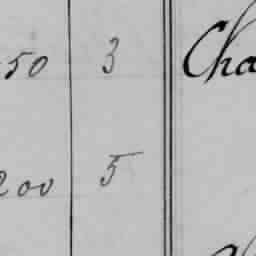 50 3 Cha
200 5